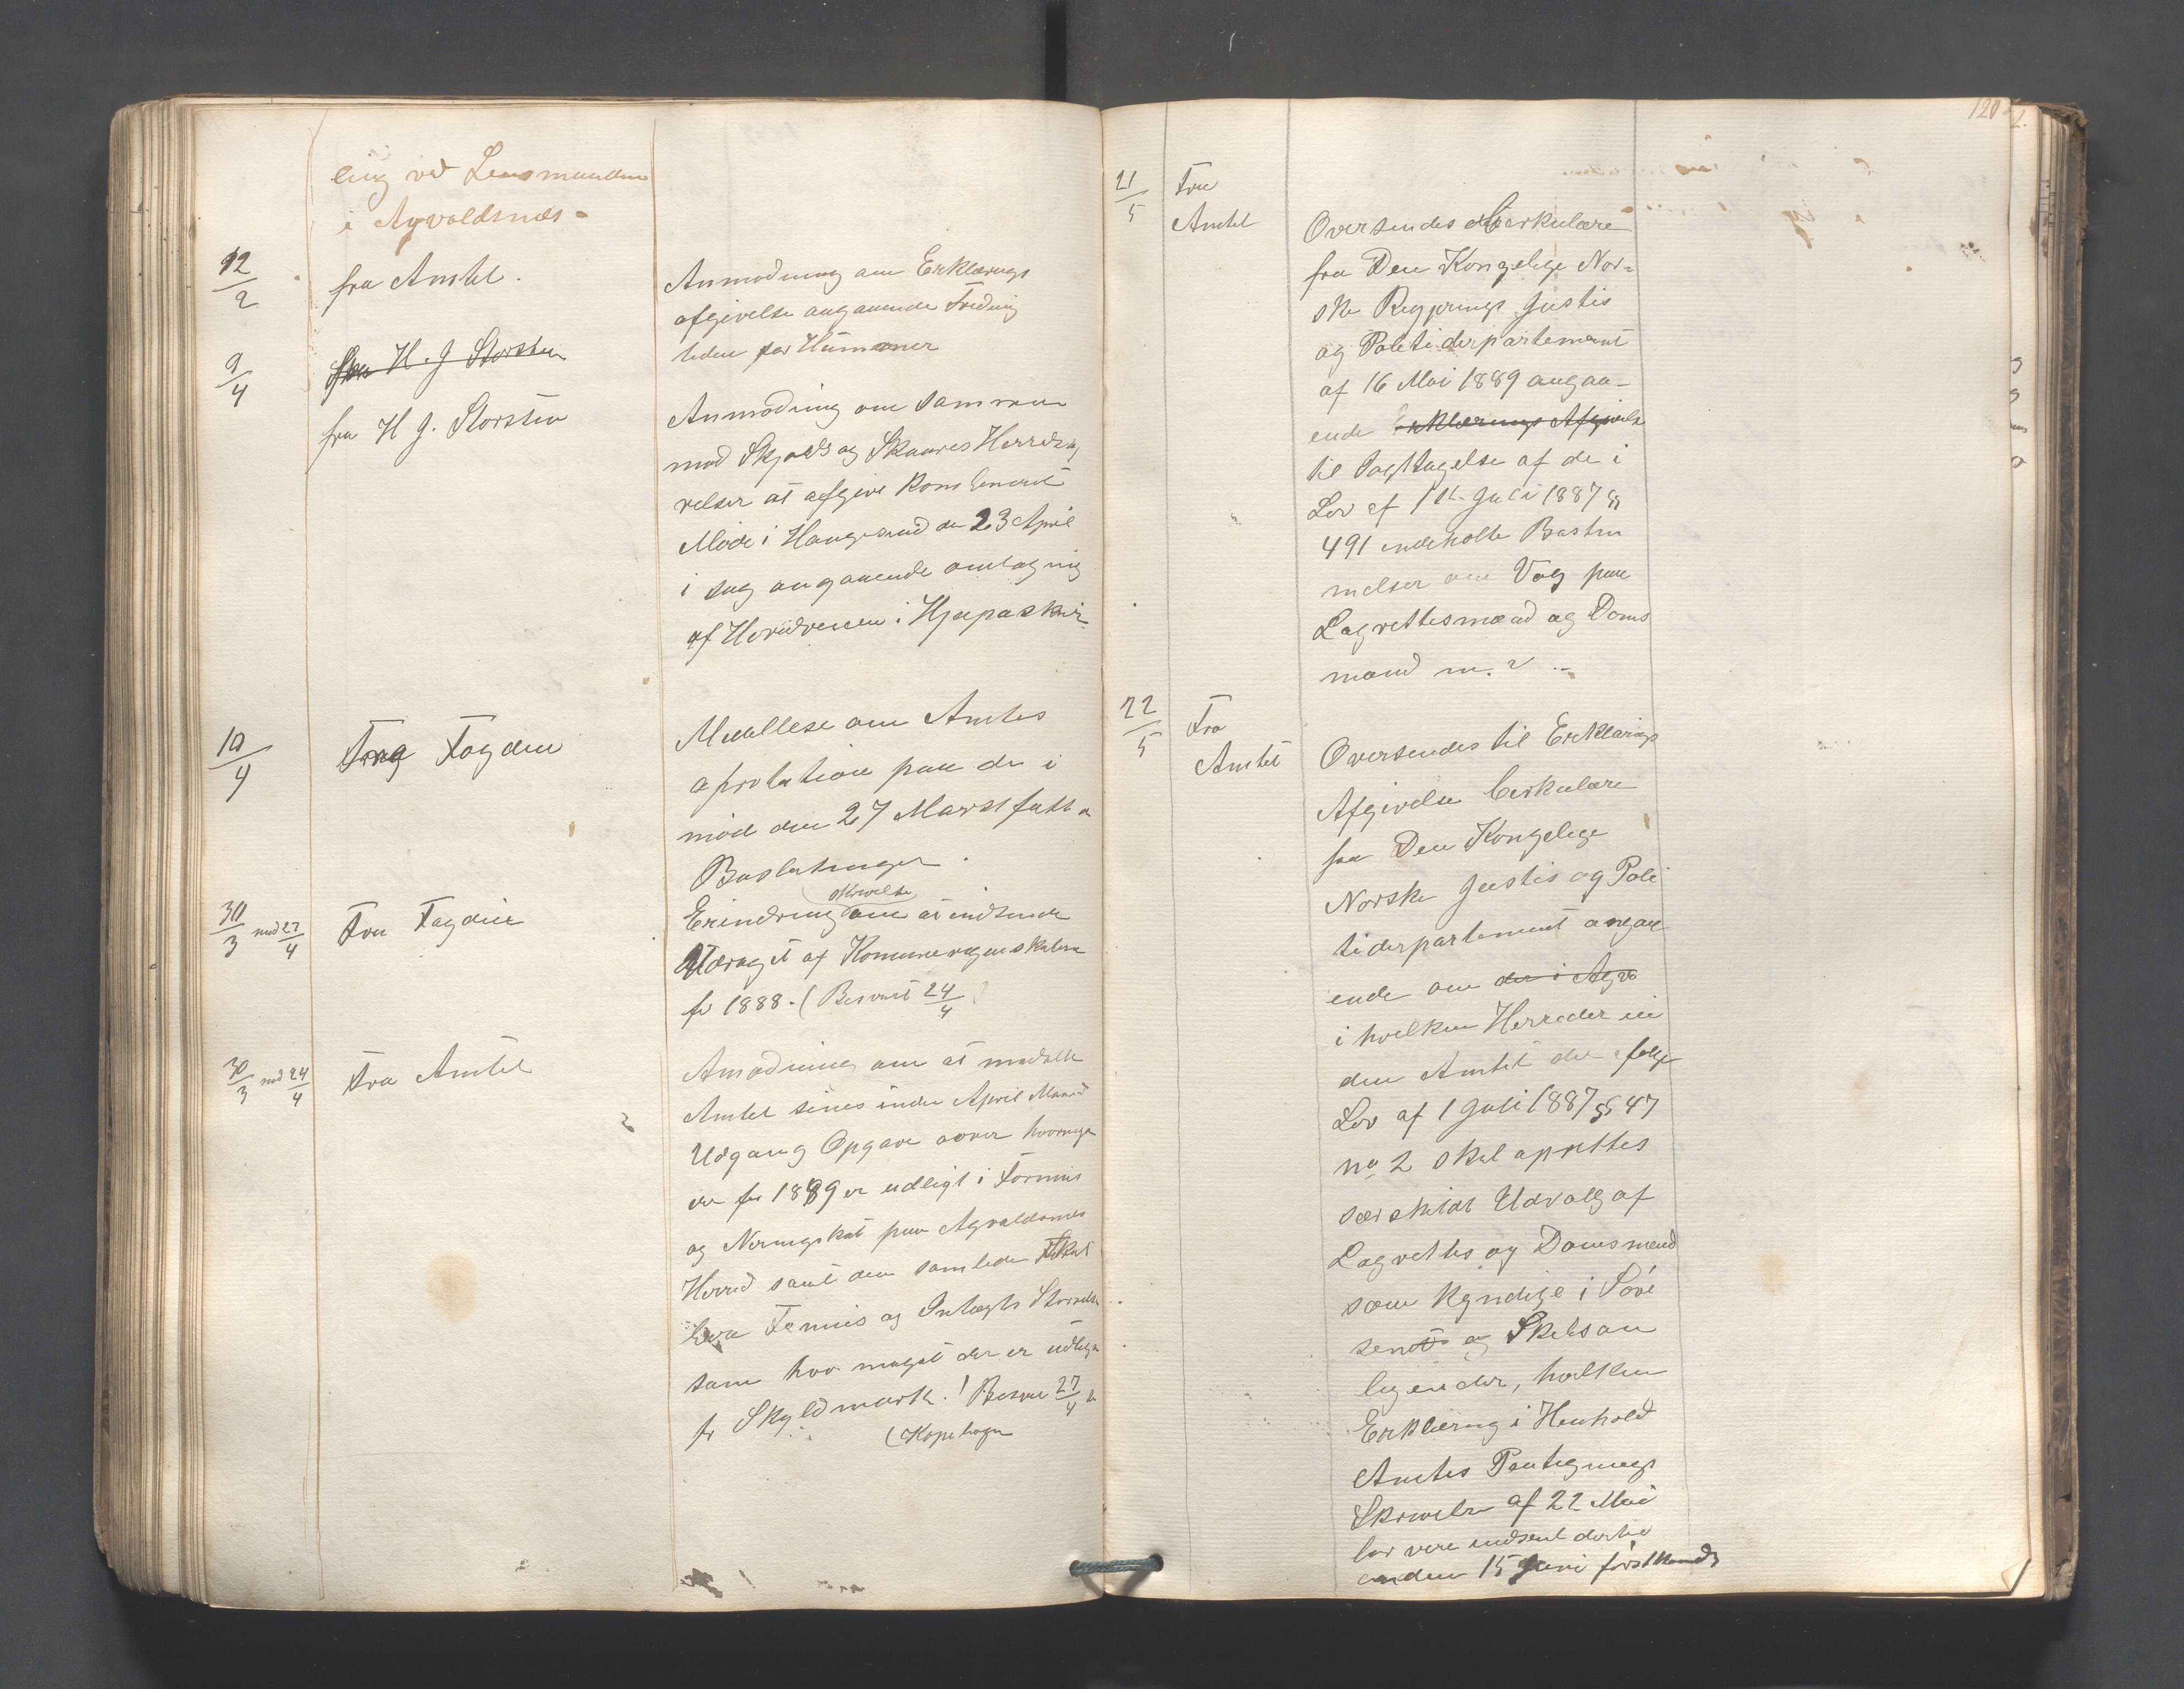 ling ved Lensmanden
i Agvaldsnes -
12/2 fra Amtet.
Anmodning om Erklærings
afgivelse angaaende Frednings
tiden for Hummer
9/4 fra H. J Storsten
fra H J. Storsten
Anmodning om sammen
med Skjolds og Skaares Herreds
relser at afgive Kombineret
Møde i Haugesund den 23 April
i sag angaaende omlægning
af Hovedveien i Hjapaskar
10/4 Fra Fogden
Medellese om Amtes
aprobation paa de i
møde den 27 Marst fatta
Beslutninger.
30/3 med 27/4 Fra Fogden
skrivelse
Erindring om at indsende
Udraget af Komuneregenskaberne
for 1888. (Besvart 24/4)
30/3 med 24/4 Fra Amtet
Amodning om at meddele
Amtet senes inden April Maaned
Udgang Opgave over hvormeget
der for 1889 er udligt i Formues
og Neringskat paa Agvaldsnes
Herred samt den samlede Skat
bara Formues og Intægts Størrelse
sam hvor meget der er udligt
pr Skyldmark. ! Besvar 27/4
(Kopebogen
120
21/5 Fra
Amtet
Oversendes Cirkulære
fra Den Kongelige Nor-
ske Regjerings Justis
og Politiderpartement
af 16 Mai 1889 angaa-
ende Erklærings Afgivelse
til Iagttagelse af de i
Lov af 1 Juli 1887 §§
491 indeholte Bestem
melser om Valg paa
Lagrettesmænd og Doms
mænd m. v -
22/5 Fra
Amtet
Oversendes til Erklærings
Afgivelse Cirkulære
fra Den Kongelige
Norske Justis og Poli
tiderpartement angaa
ende om der i Agv
i hvilken Herreder in
den Amtet der ifølge
Lov af 1 Juli 1887 §§ 47
no 2 skal oprettes
særskildt Udvalg af
Lagrettes og Domsmænd
som Kyndige i Søvæ
senet og Skibsan
ligender, hvilken
Erklæring i Henhold
Amtes Paategnings
Skrivelse af 22 Mai
bør være indsent dertil
inden 15 Juni førstkomende